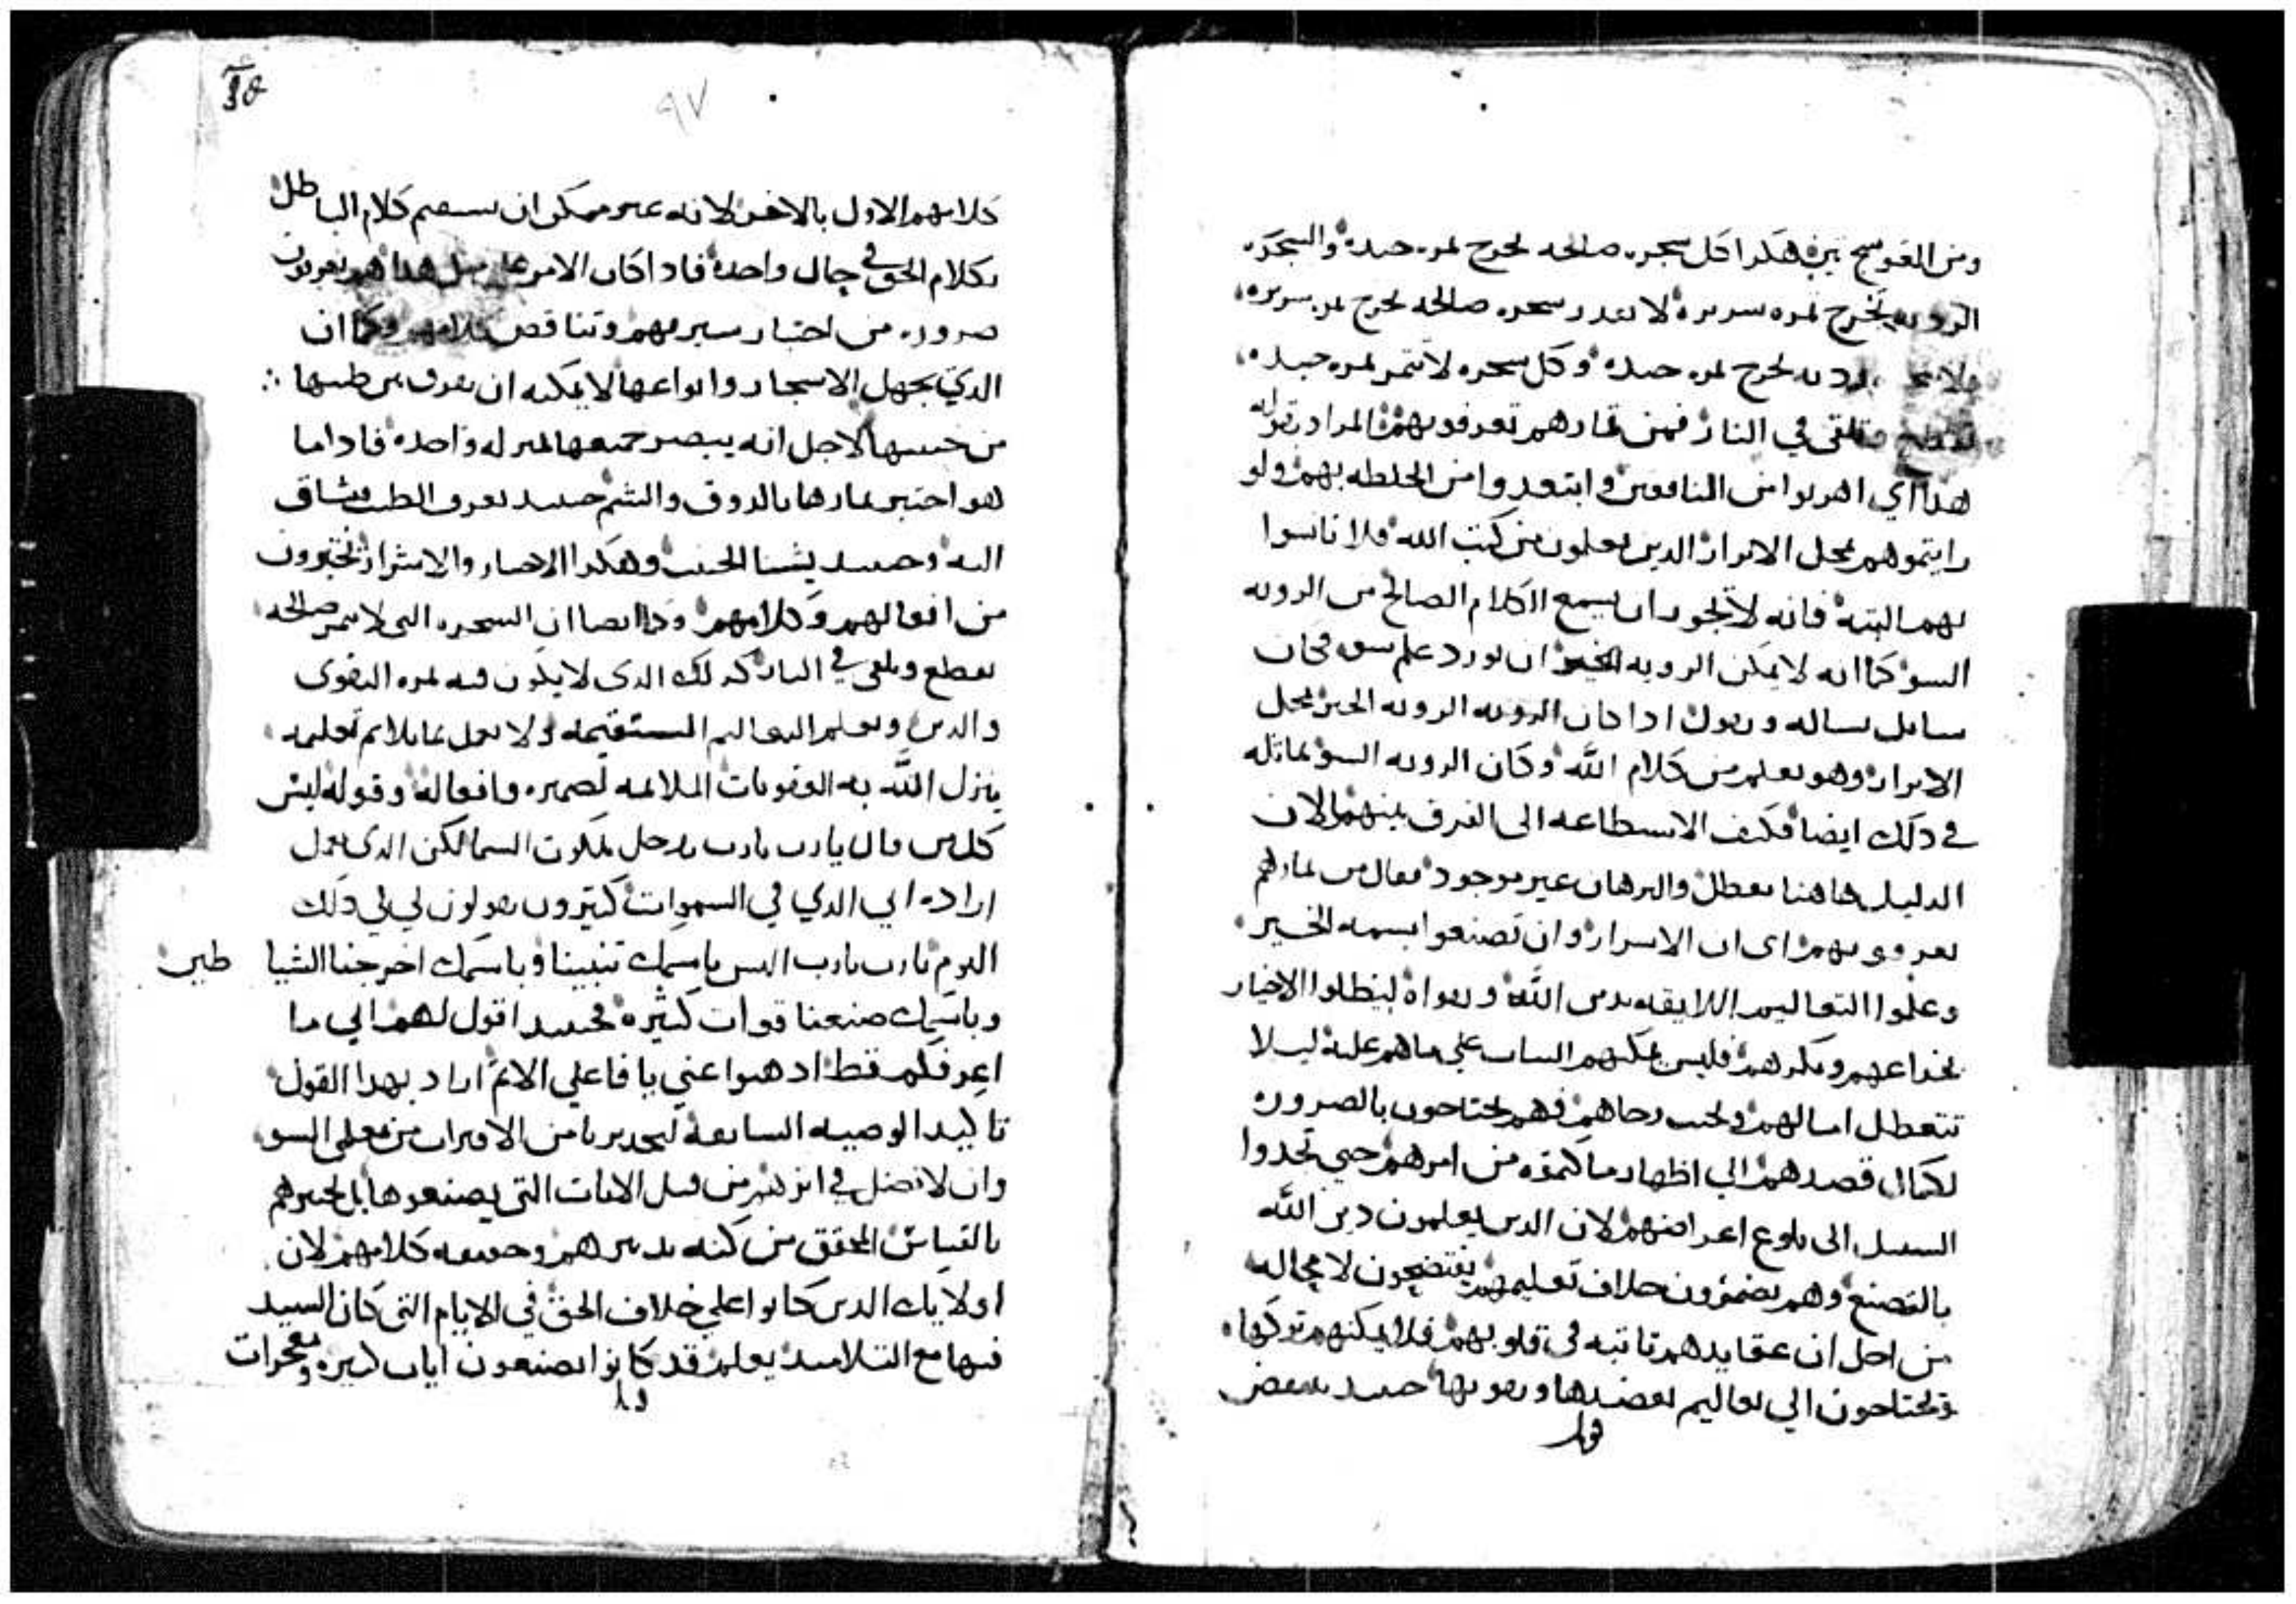 ومن العوسج تين هكدا كل سجره صالحه تخرج ثمره جيده والسجره
الرديه تخرج ثمره سريره لا تقدر سجره صالحه تخرج ثمره سريره
ولا سجره رديه تخرج ثمره جيده وكل سجره لا تثمر ثمره جيده
تقطع وتلقى في النار فمن ثمارهم تعرفونهم المراد بقوله
هدا اي اهربوا من المنافقين وابتعدوا من الخلطه بهم ولو
رايتموهم بمحل الابرار الدين يعلمون من كتب الله فلا تانسوا
بهم البته فانه لا يجود ان يسمع الكلام الصالح من الرويه
السو كما انه لا يمكن الرويه الخير ان تورد علم سو فكان
سايل يساله ويقول ادا كان الرويه الخير بمحل
الابرار وهو يعلم من كلام الله وكان الرويه السو يماثله
في دلك ايضا فكيف الاستطاعه الى الفرق بينهم الان
الدليل هاهنا معطل والبرهان غير موجود فقال من ثمارهم
تعرفونهم اى ان الاسرار وان تصنعوا بسمه الخير
وعلموا التعاليم اللايقه بدين الله وتقواه ليبطلوا الاخيار
بخداعهم ومكرهم فليس يمكنهم الثبات على ما هم عليه ليلا
تتعطل امالهم وتخيب رجاهم فهم يحتاجون بالضروره
لكمال قصدهم الى اظهار ما كتموه من امرهم حتى يجدوا
السبيل الى بلوغ اغراضهم لان الدين يعلمون دين الله
بالتصنع وهم يضمرون خلاف تعليمهم يفتضحون لا محاله
من اجل ان عقايدهم تابته في قلوبهم فلا يمكنهم تركها
ويحتاجون الي تعاليم تعضدها وتقويها حينيد ينقض
٩٧
كلامهم الاول بالاخر لانه غير ممكن ان يستقيم كلام الباطل
بكلام الحق في حال واحده فادا كان الامر على مثل هدا هم يعرفون
ضروره من اختبار سيرتهم وتناقض كلامهم وكما ان
الدي يجهل الاسجار وانواعها لا يمكنه ان يعرف من طيبها
من خبيثها لاجل انه يبصر جميعها بمنزله واحده فادا ما
هو اختبر ثمارها بالدوق والشم حينيد يعرف الطيب فيشتاق
اليه وحينيد يشنا الخبيث وهكدا الاخيار والاشرار تختبرون
من افعالهم وكلامهم وكما ايضا ان السجره التى لا تثمر صالحه
تقطع وتلقى في النار كدلك الدى لا يكون فيه ثمره التقوى
والدين ويعلم التعاليم المستقيمه ولا يعمل بما يلايم تعليمه
ينزل الله به العقوبات الملايمه لضميره وافعاله وقوله ليس
كل من قال يارب يارب يدخل ملكوت السما لكن الدى يعمل
اراده ابي الدي في السموات كثيرون يقولون لي في دلك
اليوم يارب يارب اليس باسمك تنبينا وباسمك اخرجنا الشيا
طين
وباسمك صنعنا قوات كثيره فحينيد اقول لهم اني ما
اعرفكم قط ادهبوا عني يا فاعلي الاثم اراد بهدا القول
تاكيد الوصيه السابعه لتحديرنا من الاقتران من معلمى السو
وان لا نضل في اثرهم من قبل الايات التى يصنعوها بل نختبرهم
بالقياس المحقق من كنه تدبيرهم وحقيقه كلامهم لان
اولايك الدين كانوا على خلاف الحق في الايام التى كان السيد
فيها مع التلاميد يعلم قد كانوا يصنعون ايات كثيره ومعجزات